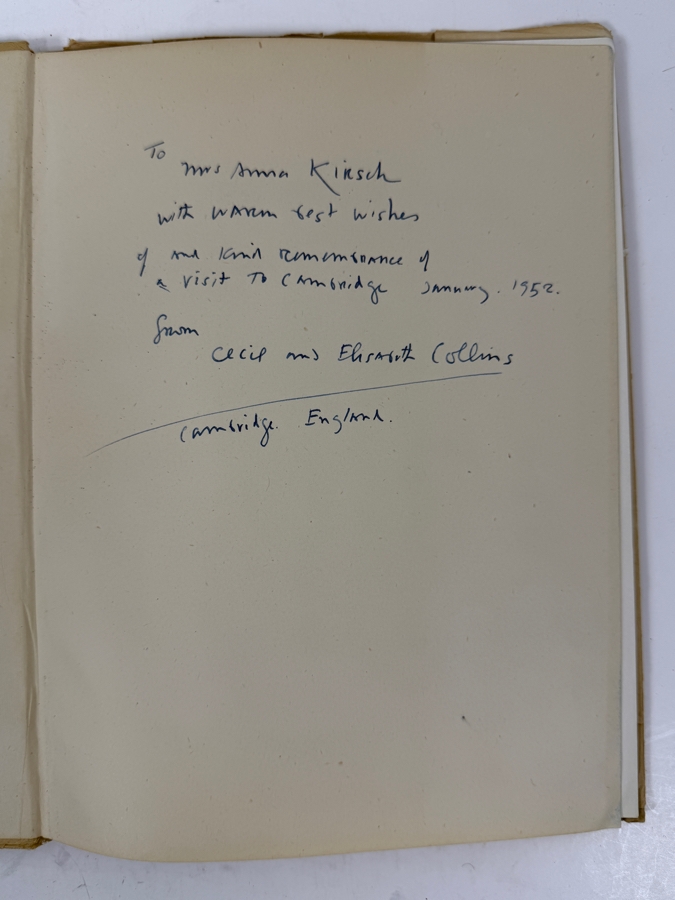 To
Mrs Anna Kirsch
with warm best wishes
of and kind remembrance of
a visit to Cambridge January. 1952.
from
Cecil and Elisabeth Collins
Cambridge. England.